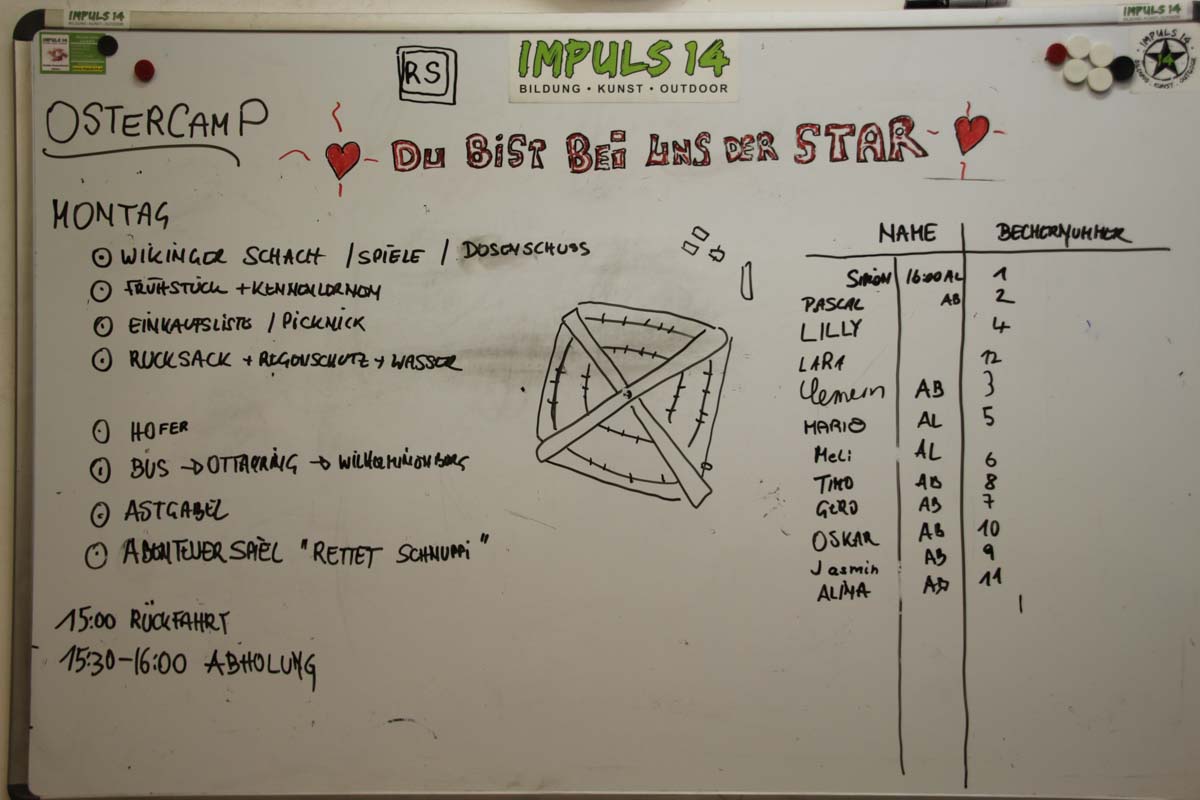 IMPULS 14
IMPULS 14
RS
IMPULS 14
BILDUNG • KUNST • OUTDOOR
IMPULS 14
BILDUNG • KUNST • OUTDOOR
OSTERCAMP
DU BIST BEI UNS DER STAR
MONTAG
WIKINGER SCHACH / SPIELE / DOSENSCHUSS
FRÜHSTÜCK + KENNENLERNEN
EINKAUFSLISTE / PICKNICK
RUCKSACK + REGENSCHUTZ + WASSER
HOFER
BUS → OTTAKRING → WILHELMINENBERG
ASTGABEL
ABENTEUERSPIEL "RETTET SCHNUPPI"
15:00 RÜCKFAHRT
15:30-16:00 ABHOLUNG
NAME BECHERNUMMER
SIMON 16:00 AL 1
PASCAL AB 2
LILLY 4
LARA 12
Clemens AB 3
MARIO AL 5
MeLi AL 6
TIMO AB 8
GERO AB 7
OSKAR AB 10
Jasmin AB 9
ALINA AB 11